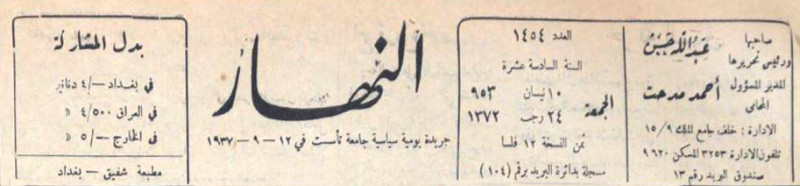 صاحبها
ورئيس تحريرها
عبدالله حسن
المدير المسؤول
المحامي
أحمد مدحت
الادارة : خلف جامع الملك ١٥/٩
تلفون الادارة ٣٢٥٣ المسكن ٩٦٢٠
صندوق البريد رقم ١٣
العدد ١٤٥٤
السنة السادسة عشرة
الجمعة
١٠ نيسان ٩٥٣
٢٤ رجب ١٣٧٢
ثمن النسخة ١٢ فلسا
مسجلة بدائرة البريد برقم (١٠٤)
النهار
جريدة يومية سياسية جامعة تأسست في ١٢ - ٩ - ١٩٣٧
بدل المشاركة
في بغداد -/٤ دنانير
في العراق ٤/٥٠٠ »
في الخارج -/٥ »
مطبعة شفيق - بغداد